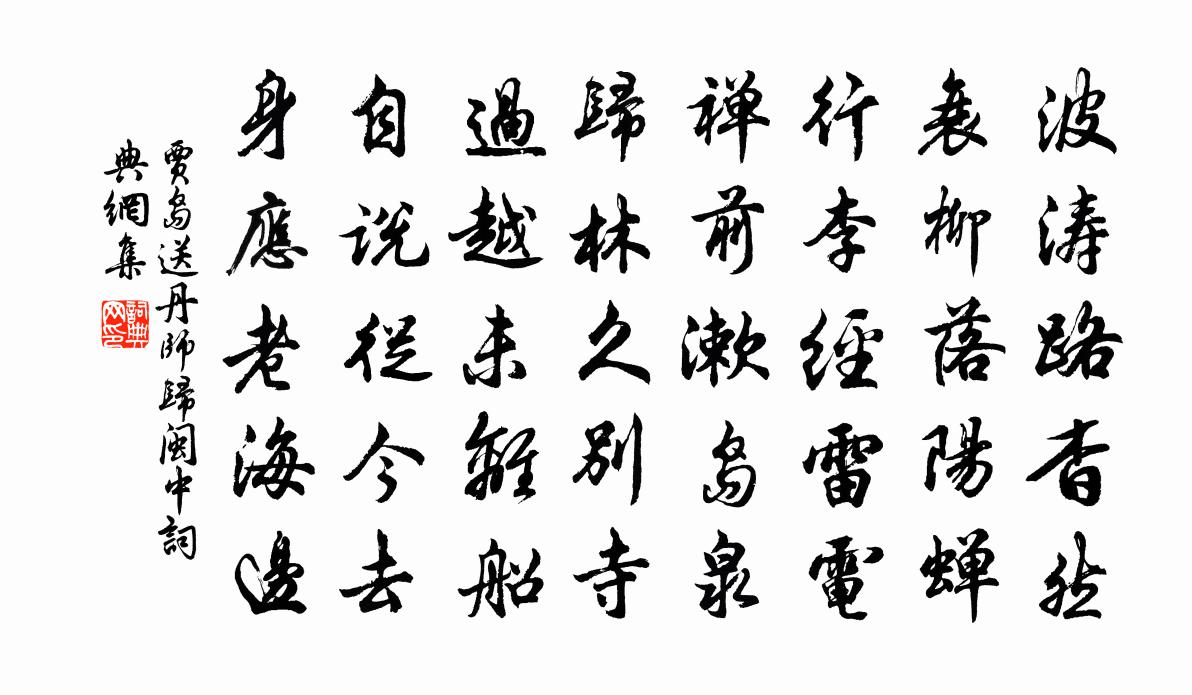 波涛路杳然
衰柳落陽蝉
行李經雷電
禅前漱島泉
歸林久別寺
過越未離船
自説從今去
身應老海邊
賈島送丹師歸閩中詞
典網集
詞典
网印